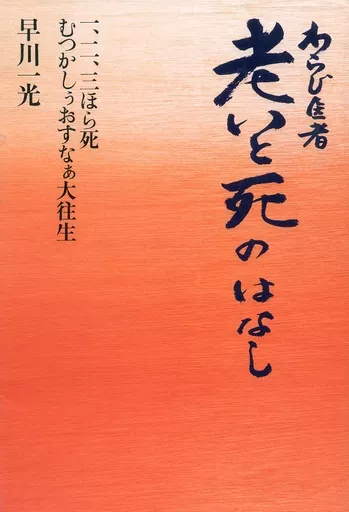 わらじ医者
老いと死のはなし
一、二、三ほら死
むつかしぅおすなぁ大往生
早川一光